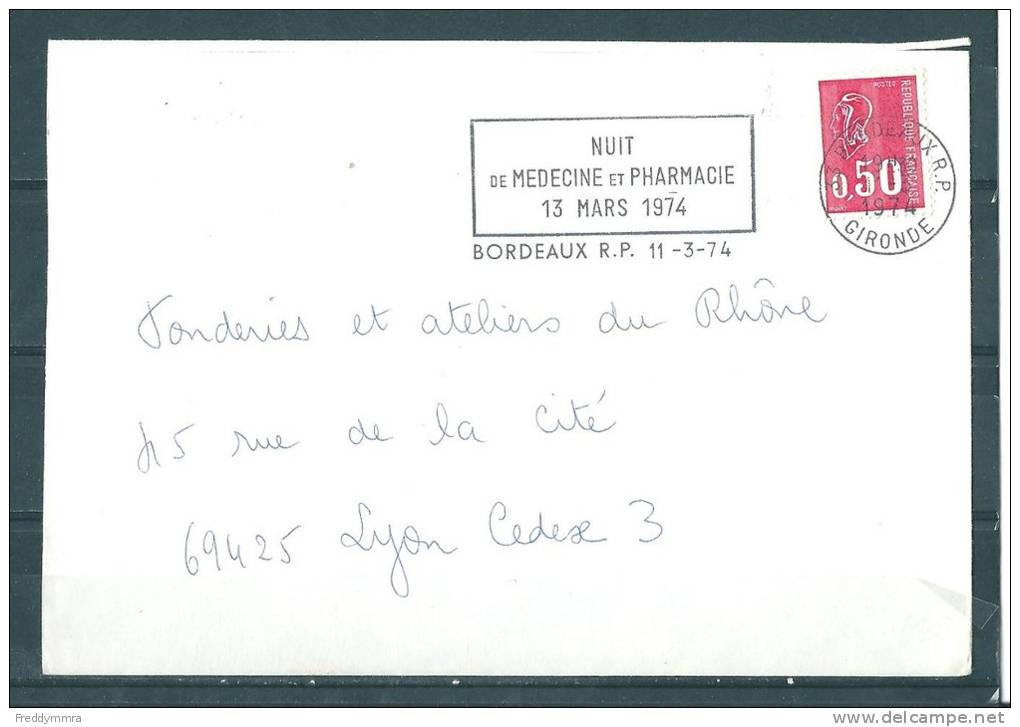 NUIT
DE MEDECINE ET PHARMACIE
13 MARS 1974
BORDEAUX R.P. 11-3-74
POSTES
REPUBLIQUE FRANÇAISE
0,50
BORDEAUX R.P.
1974
GIRONDE
Fonderies et ateliers du Rhône
45 rue de la Cité
69425 Lyon Cedex 3
Freddymmra
delcampe.net